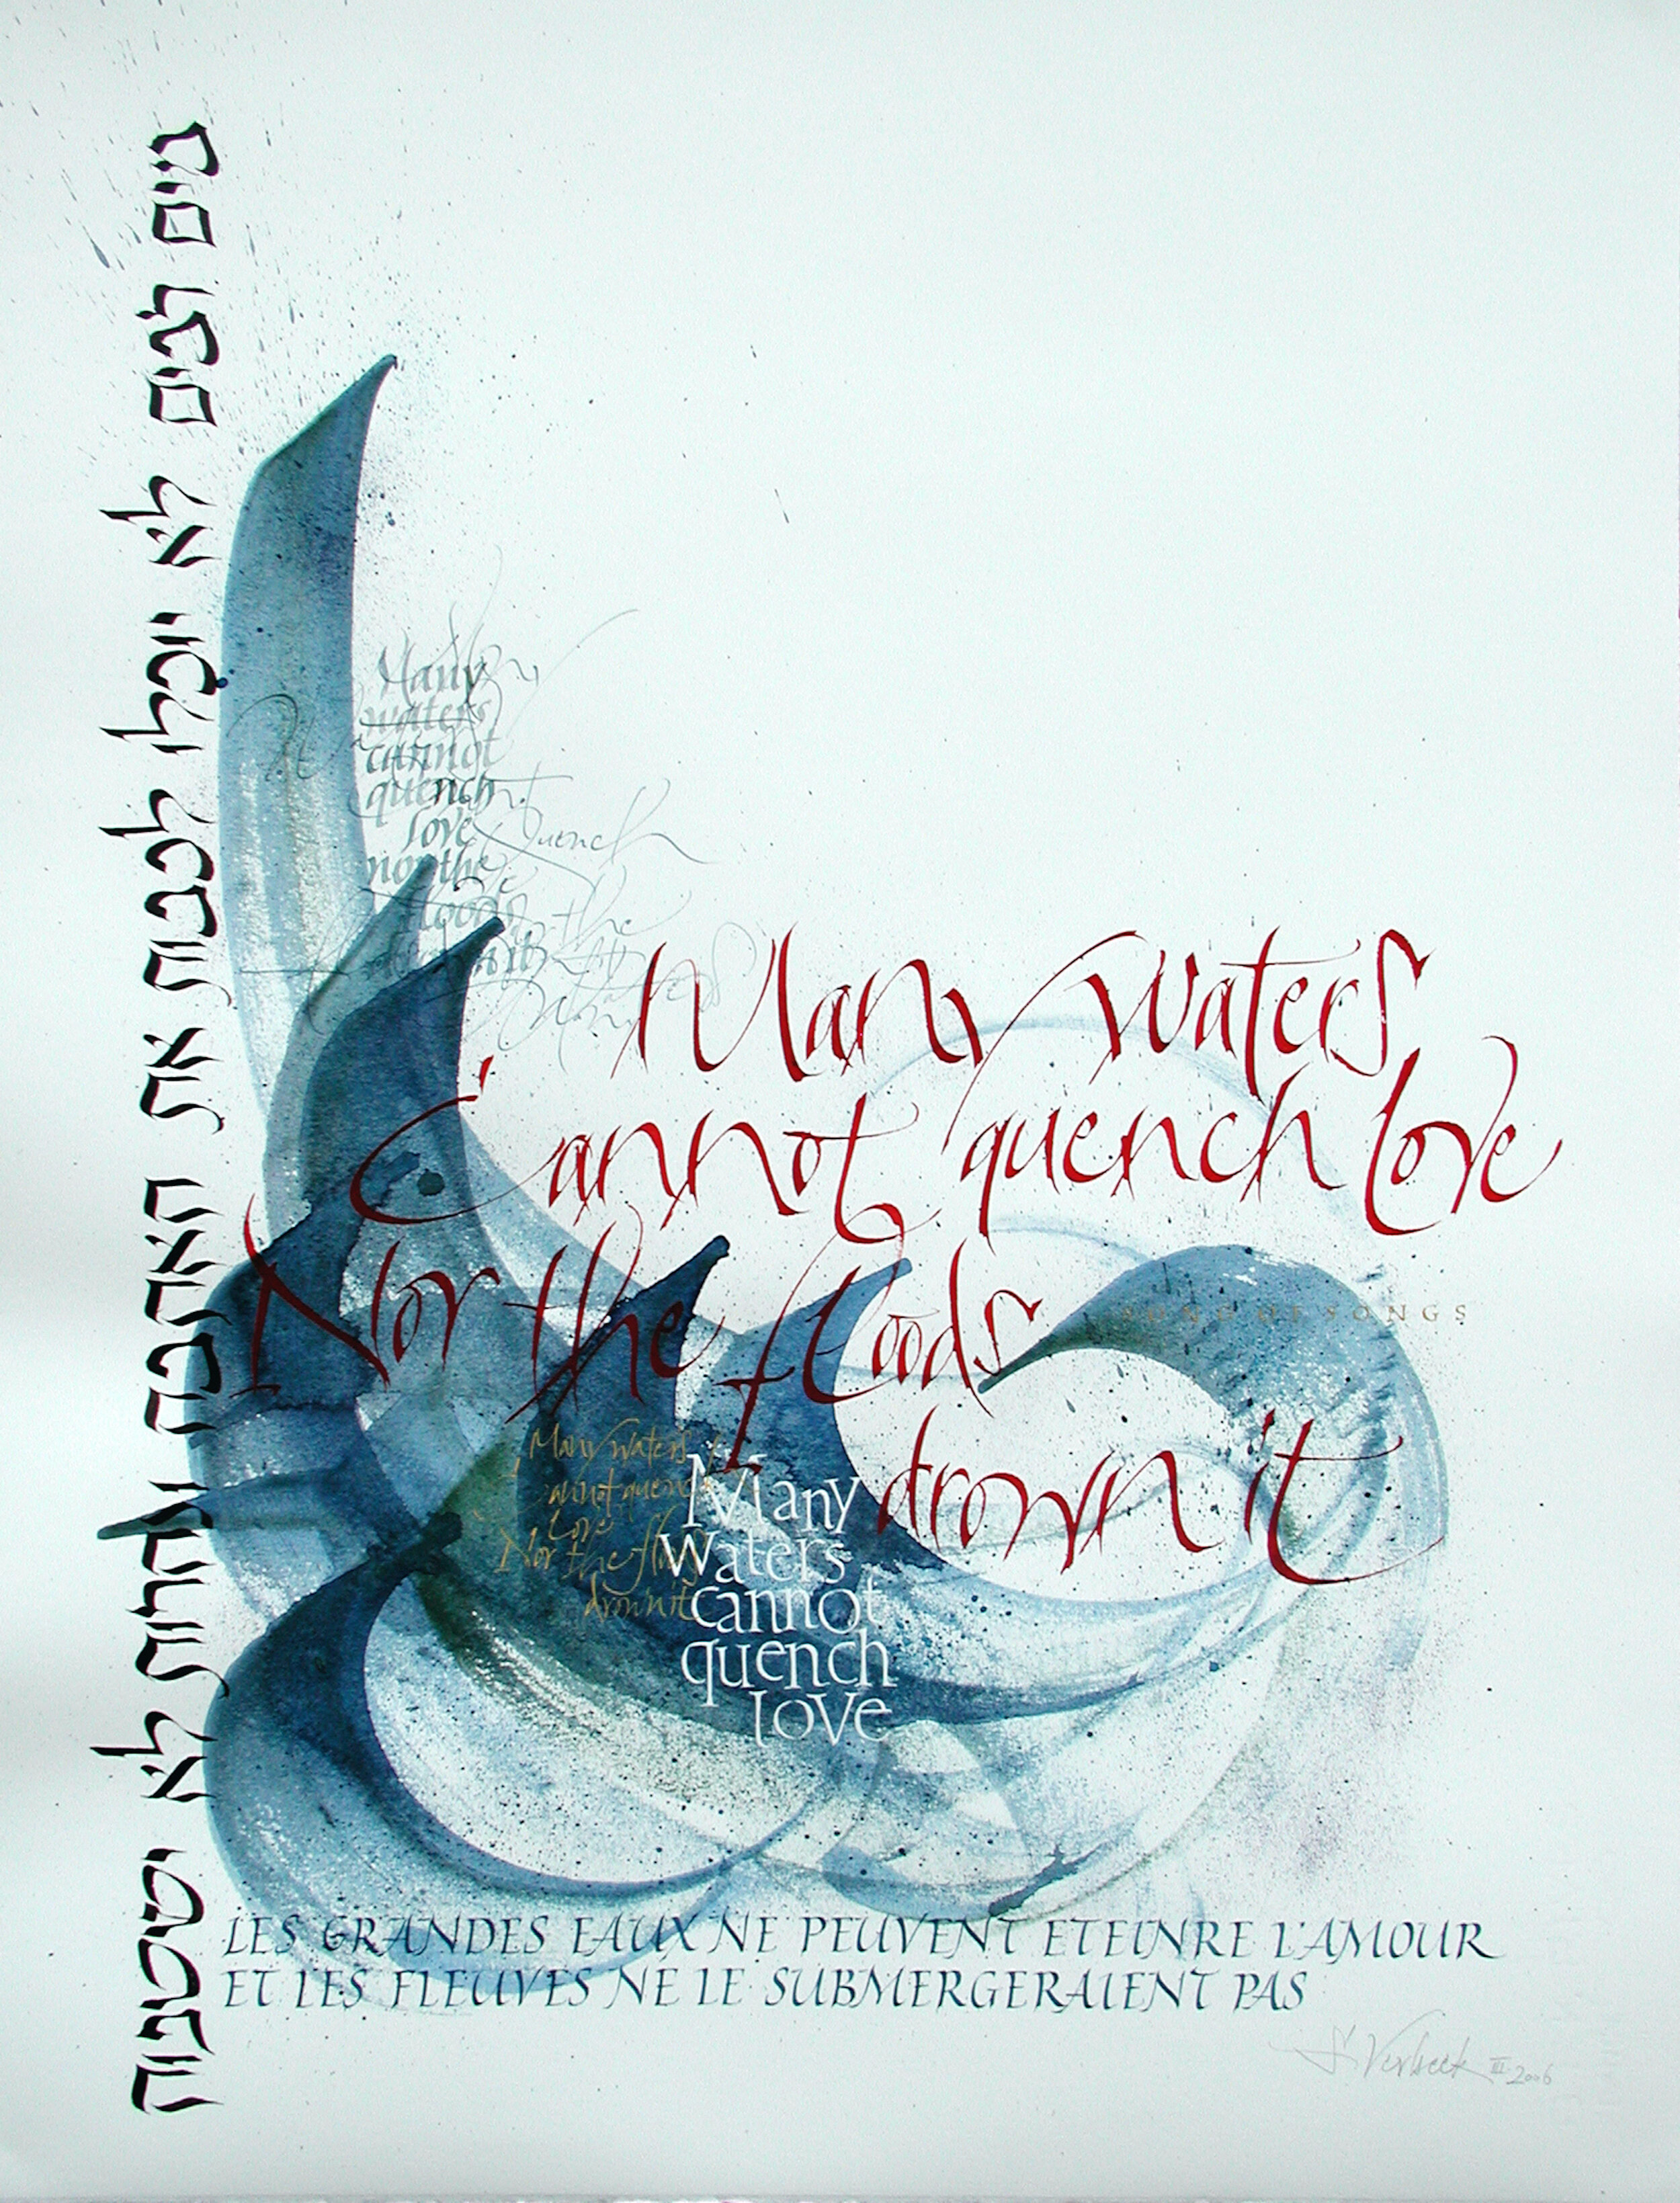 מים רבים לא יוכלו לכבות את האהבה ונהרות לא ישטפוה
Many
waters
cannot
quench
love
nor the
floods
drown it
Quench
the
Many waters
cannot quench love
Nor the floods
drown it
SONG OF SONGS
Many waters
cannot quench
Love
Nor the floods
drown it
Many
Waters
cannot
quench
love
LES GRANDES EAUX NE PEUVENT ETEINRE L'AMOUR
ET LES FLEUVES NE LE SUBMERGERAIENT PAS
S. Verbeek III 2006